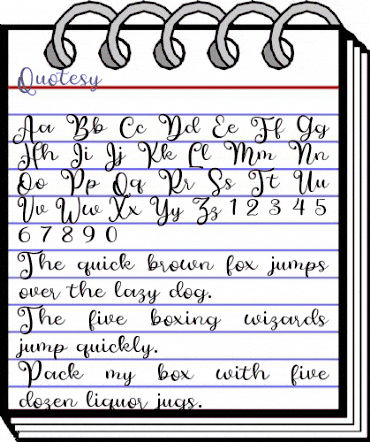 Quotesy
Aa Bb Cc Dd Ee Ff Gg
Hh Ii Jj Kk Ll Mm Nn
Oo Pp Qq Rr Ss Tt Uu
Vv Ww Xx Yy Zz 1 2 3 4 5
6 7 8 9 0
The quick brown fox jumps
over the lazy dog.
The five boxing wizards
jump quickly.
Pack my box with five
dozen liquor jugs.